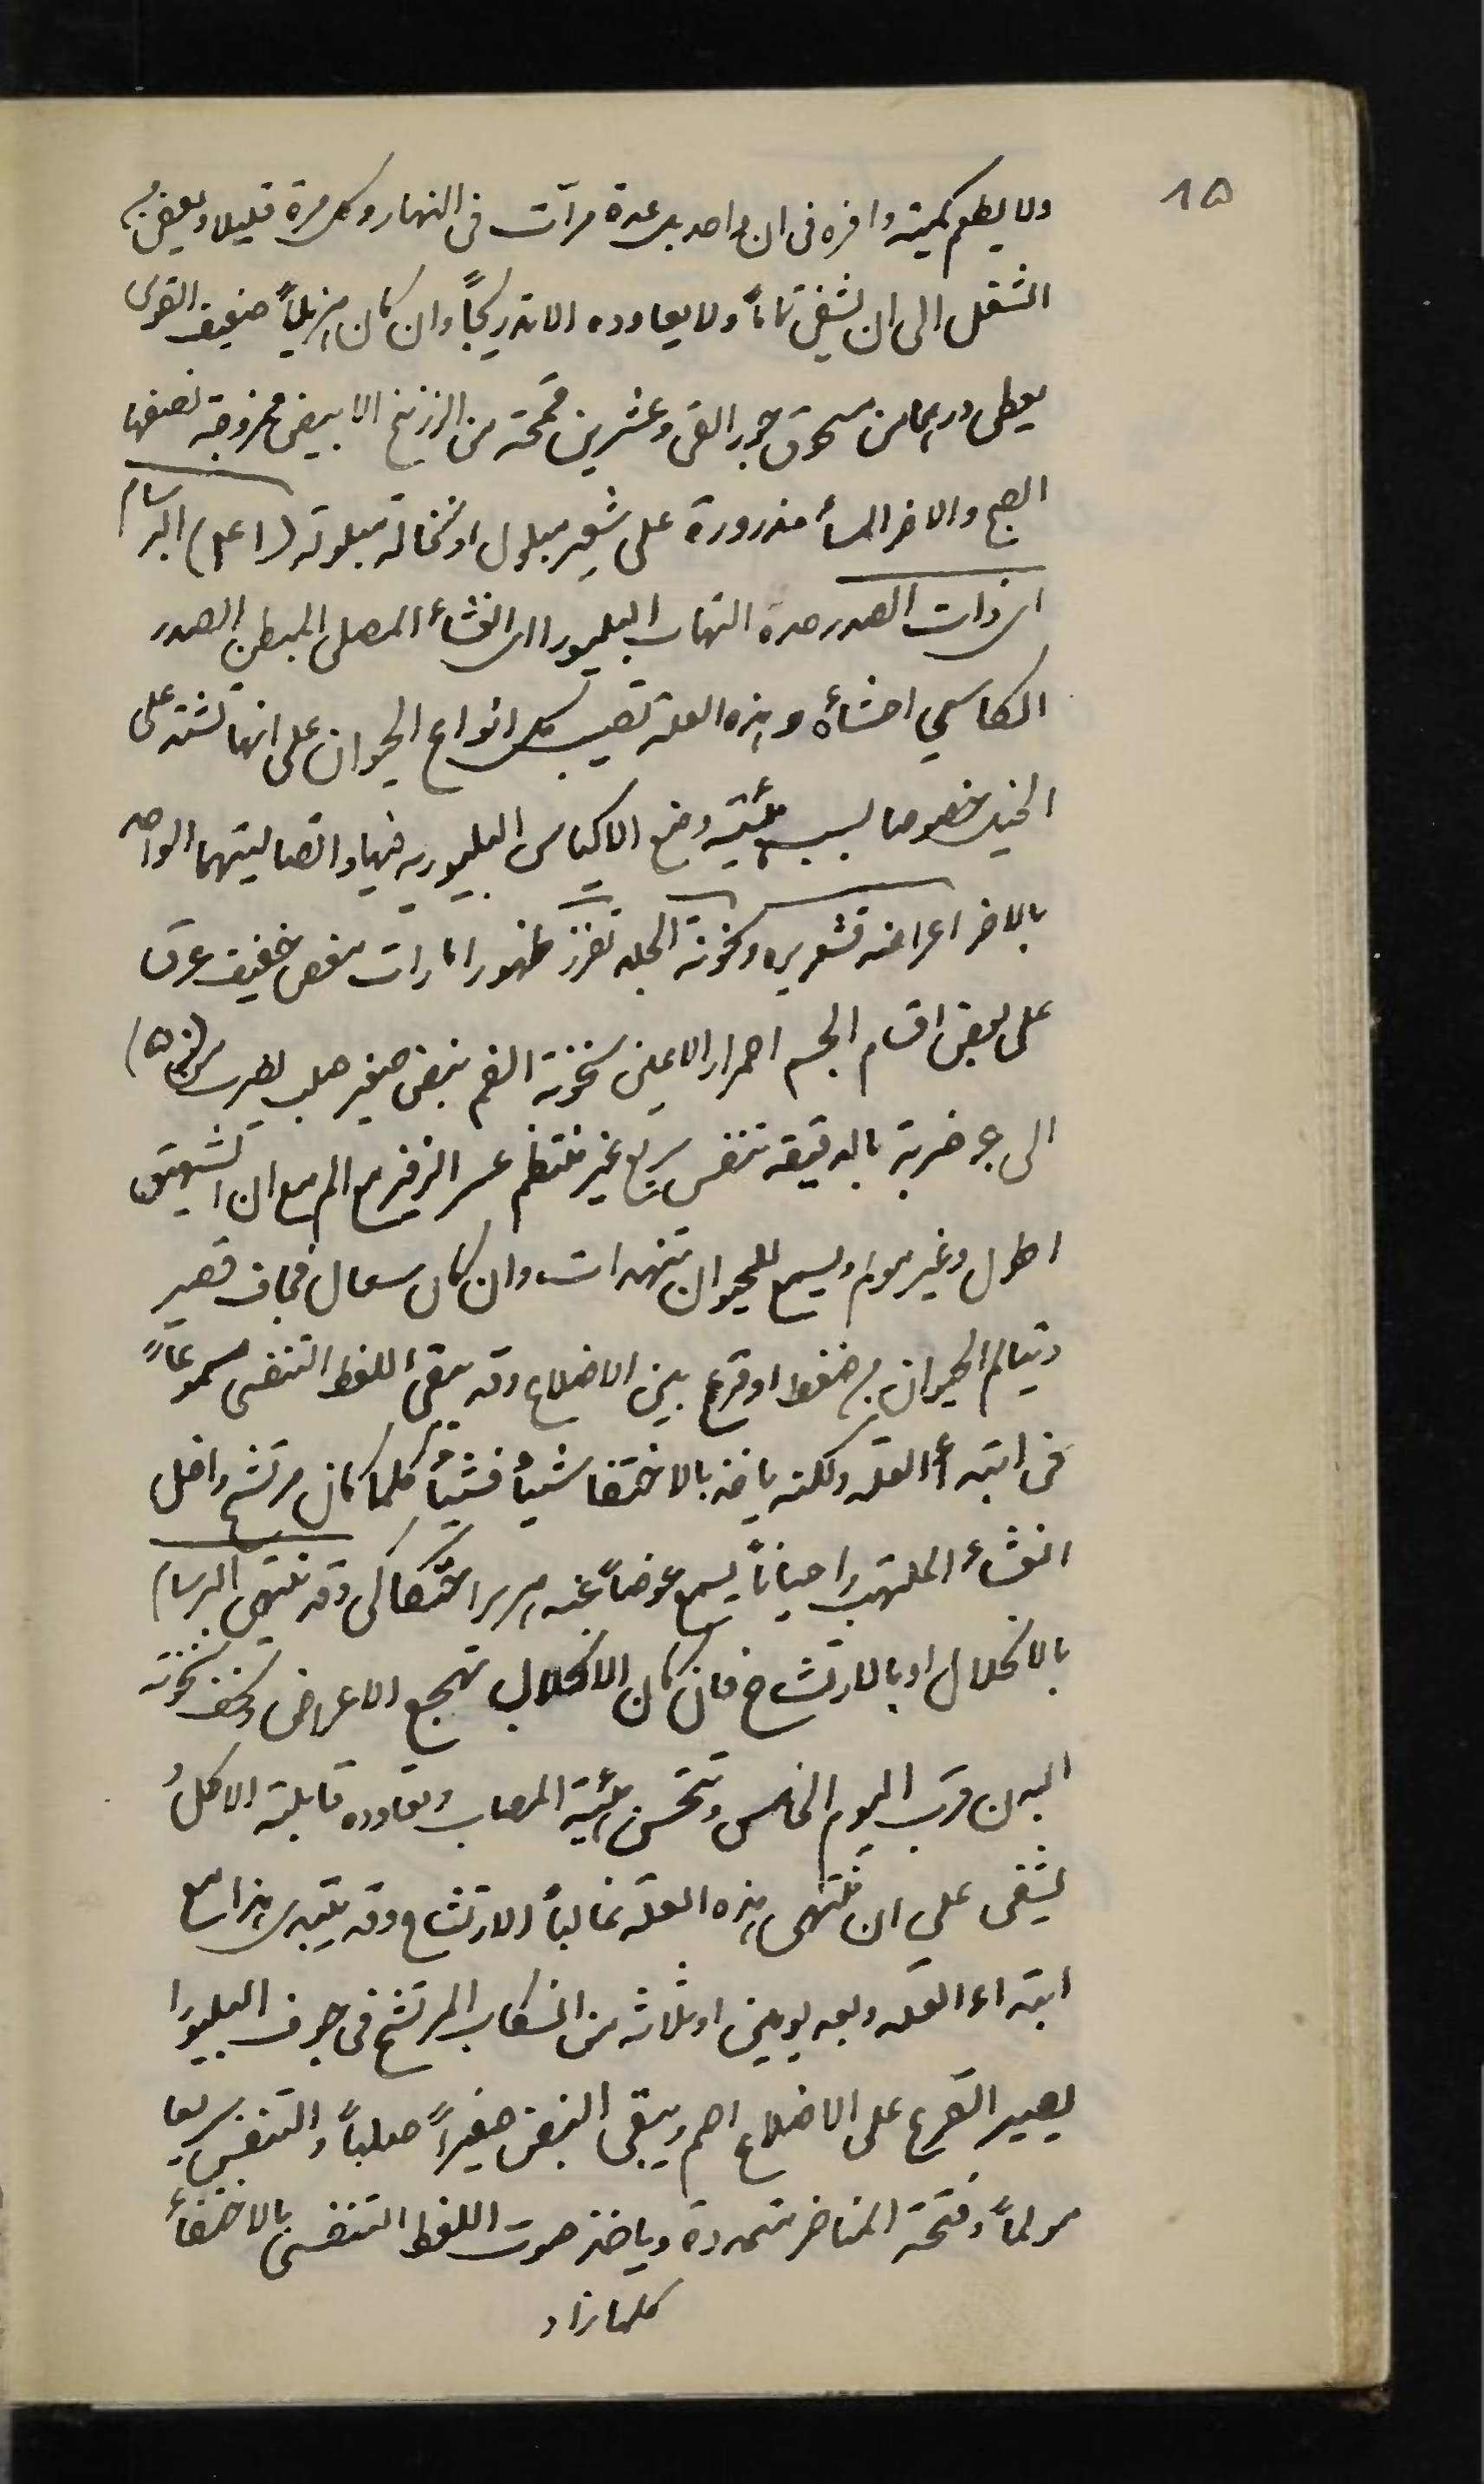 ١٥
ولا يطعم كمية وافره فى ان واحد بل عدة مرآت فى النهار وكل مرة قليلا ويعفى من
الشغل الى ان يشفى تماماً ولا يعاوده الا تدريجاً وان كان هزيلاً ضعيف القوى
يعطى درهما من مسحوق جوز القى وعشرين قمحة من الزرنيخ الابيض ممزوجة نصفها
الصبح والاخر المسأ مذرورة على شعير مبلول او نخالة مبلولة (اعلم) البرسام
اى ذات الصدر حدة التهاب البليورا اى الغشأ المصلى المبطن الصدر
الكاسي احشأه وهذه العلة تصيب كل انواع الحيوان على انها تشتد على
الخيل خصوصا بسبب هئية وضع الاكياس البليوريه فيها واتصاليتهما الواحد
بالاخر اعراضه قشعريره وسخونة الجلد تفزز ظهور امارات مغص خفيف عرق
على بعض اقسام الجسم احمرار الاعين سخونة الفم نبض صغير صلب يضرب من (٥٠)
الى ضربة بالدقيقه تنفس سريع غير منتظم عسر الزفير مع الم مع ان الشهيق
اطول وغير مولم ويسمع للحيوان تنهدات وان كان سعال فجاف قصير
ويتالم الحيوان من ضغط او قرع بين الاضلاع وقد يبقى اللغط التنفسى مسموعاً
فى ابتدأ العلة ولكنه ياخذ بالاختفا شيأ فشيأ كلما كان مرتشح داخل
الغشأ الملتهب واحياناً يسمع عوضاً عنه هرير احتكاكى وقد تنتهى البرسام
بالانحلال او بالارتشاح فان كان الانحلال تهجع الاعراض وتخف سخونة
البدن قرب اليوم الخامس وتتحسن هئية المصاب وتعاوده قابلية الاكل و
يشفى على ان تنتهى هذه العلة غالباً الارتشاح وقد يبتدى هذا مع
ابتداء العلة وبعد يومين او ثلاثه من انسكاب المرتشح فى جوف البليورا
يصير القرع على الاضلاع اصم ويبقى النبض صغيراً صلباً والتنفس سريعا
مولماً وفتحة المناخر متمددة وياخذ صوت اللغط التنفسى بالاختفأ
كلما زاد